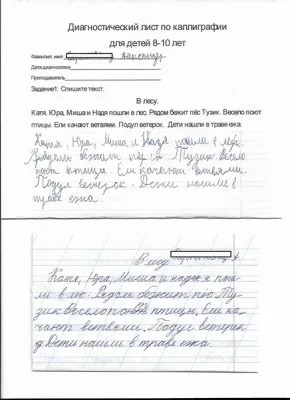 Диагностический лист по каллиграфии
для детей 8-10 лет
Фамилия, имя Александр
Дата диагностики
Преподаватель
Задание1: Спишите текст.
В лесу.
Катя, Юра, Миша и Надя пошли в лес. Рядом бежит пёс Тузик. Весело поют
птицы. Ели качают ветвями. Подул ветерок. Дети нашли в траве ежа.
Катя, Юра, Миша и Надя пошли в лес.
бежит пёс Тузик Весело
поют птицы. Ели качают ветвями.
Подул ветерок. Дети нашли в
траве ежа
В лесу
Катя, Юра Миша и надя пош
ли в ле. Рядом бежит пёс Ту
зик Весело поют птицы, Ели ка
чают ветвями. Подул ветерок
Дети нашли в траве ежа.